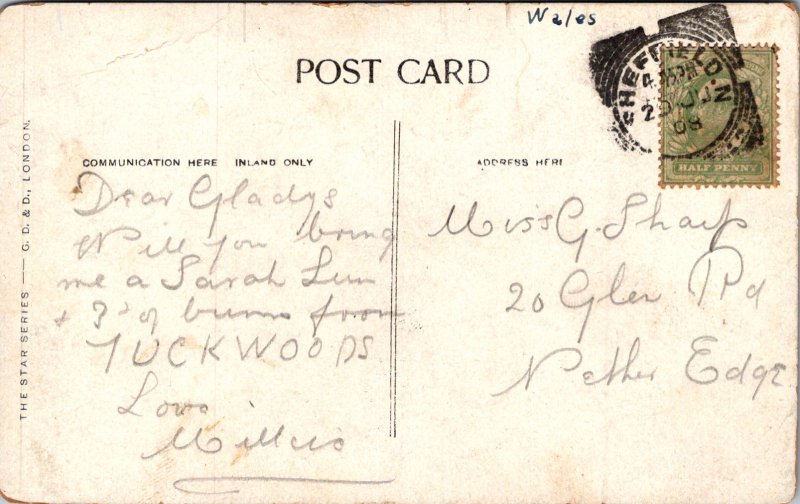 Wales
POST CARD
SHEFFIELD
JN
08
HALF PENNY
THE STAR SERIES — G. D. & D., LONDON.
COMMUNICATION HERE INLAND ONLY
Dear Gladys
Will you bring
me a Sarah Lun
& 3d of buns from
TUCKWOODS
Love
ADDRESS HERE
Miss G. Sharp
20 Glen Rd
Nether Edge